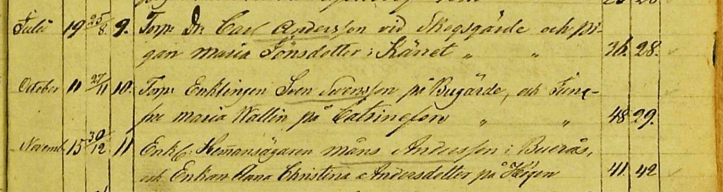 Juli 19 25/8. 9. Torp: Dr: Carl Andersson vid Skogsgärde och pi-
gan Maria Jönsdotter i Kärret " " 36. 28.
October 11 27/11 10. Torp: Enklingen Sven Svensson på Bugärde, och Jung-
fru Maria Wallin på Catrineberg " " 48 29.
Novemb. 15 30/12 11 Enkl: Hemansägaren Måns Andersson i Buerås,
och Enkan Anna Christina Andersdotter på 41 42